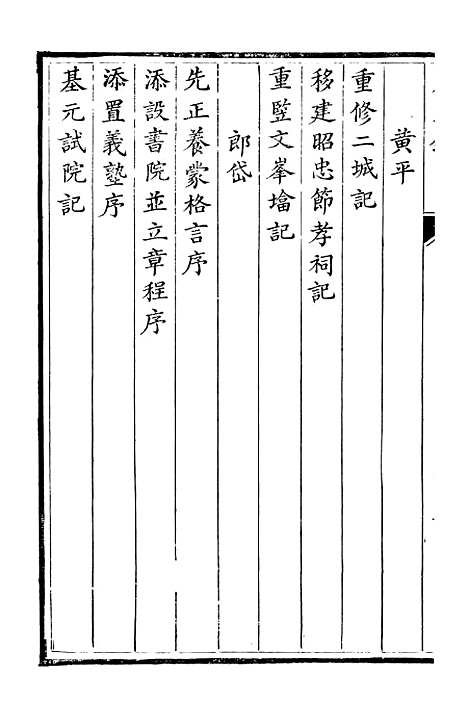 黃平
重修二城記
移建昭忠節孝祠記
重竪文峯墖記
郎岱
先正養蒙格言序
添設書院並立章程序
添置義塾序
基元試院記